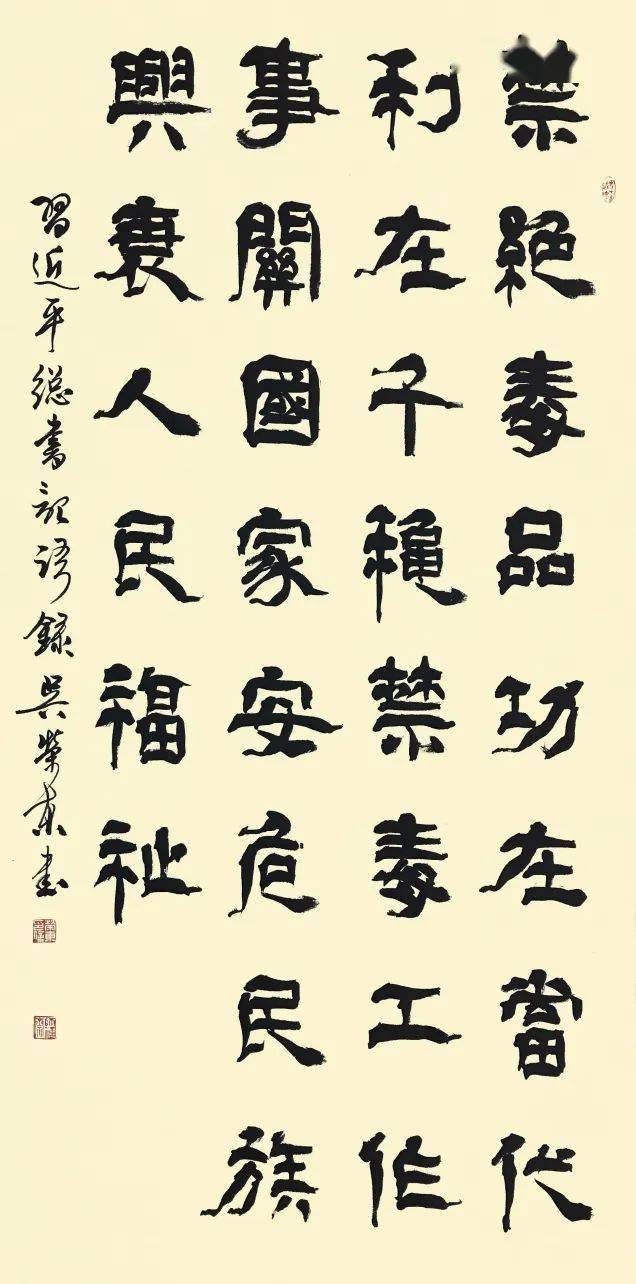 禁絕毒品功在當代
利在千穐禁毒工作
事關國家安危民族
興衰人民福祉
習近平總書記語錄吳榮東書